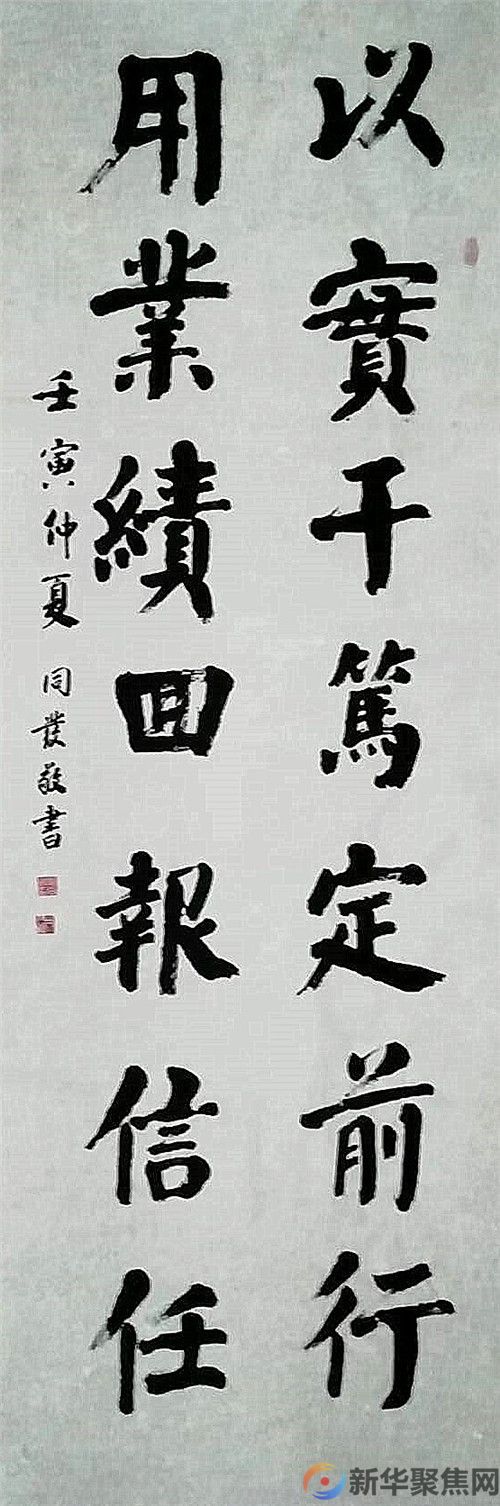 以實干篤定前行
用業績回報信任
壬寅仲夏 同發敬書
新华聚焦网